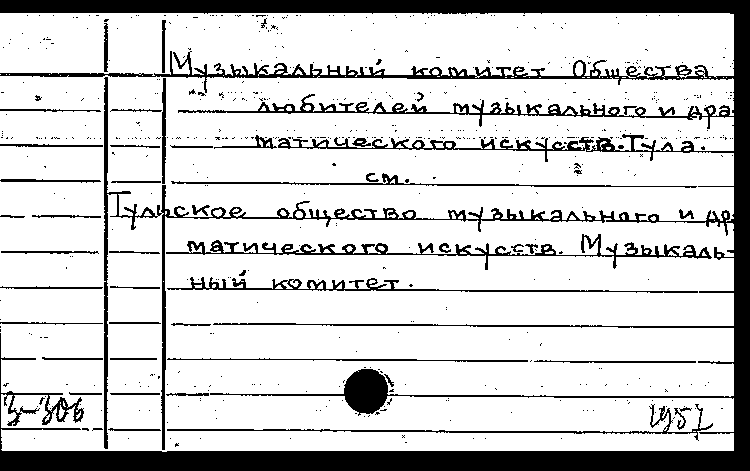 Музыкальный комитет Общества
любителей музыкального и дра-
матического искусств. Тула.
см.
Тульское общество музыкального и дра-
матического искусств. Музыкаль-
ный комитет.
3-306
1957